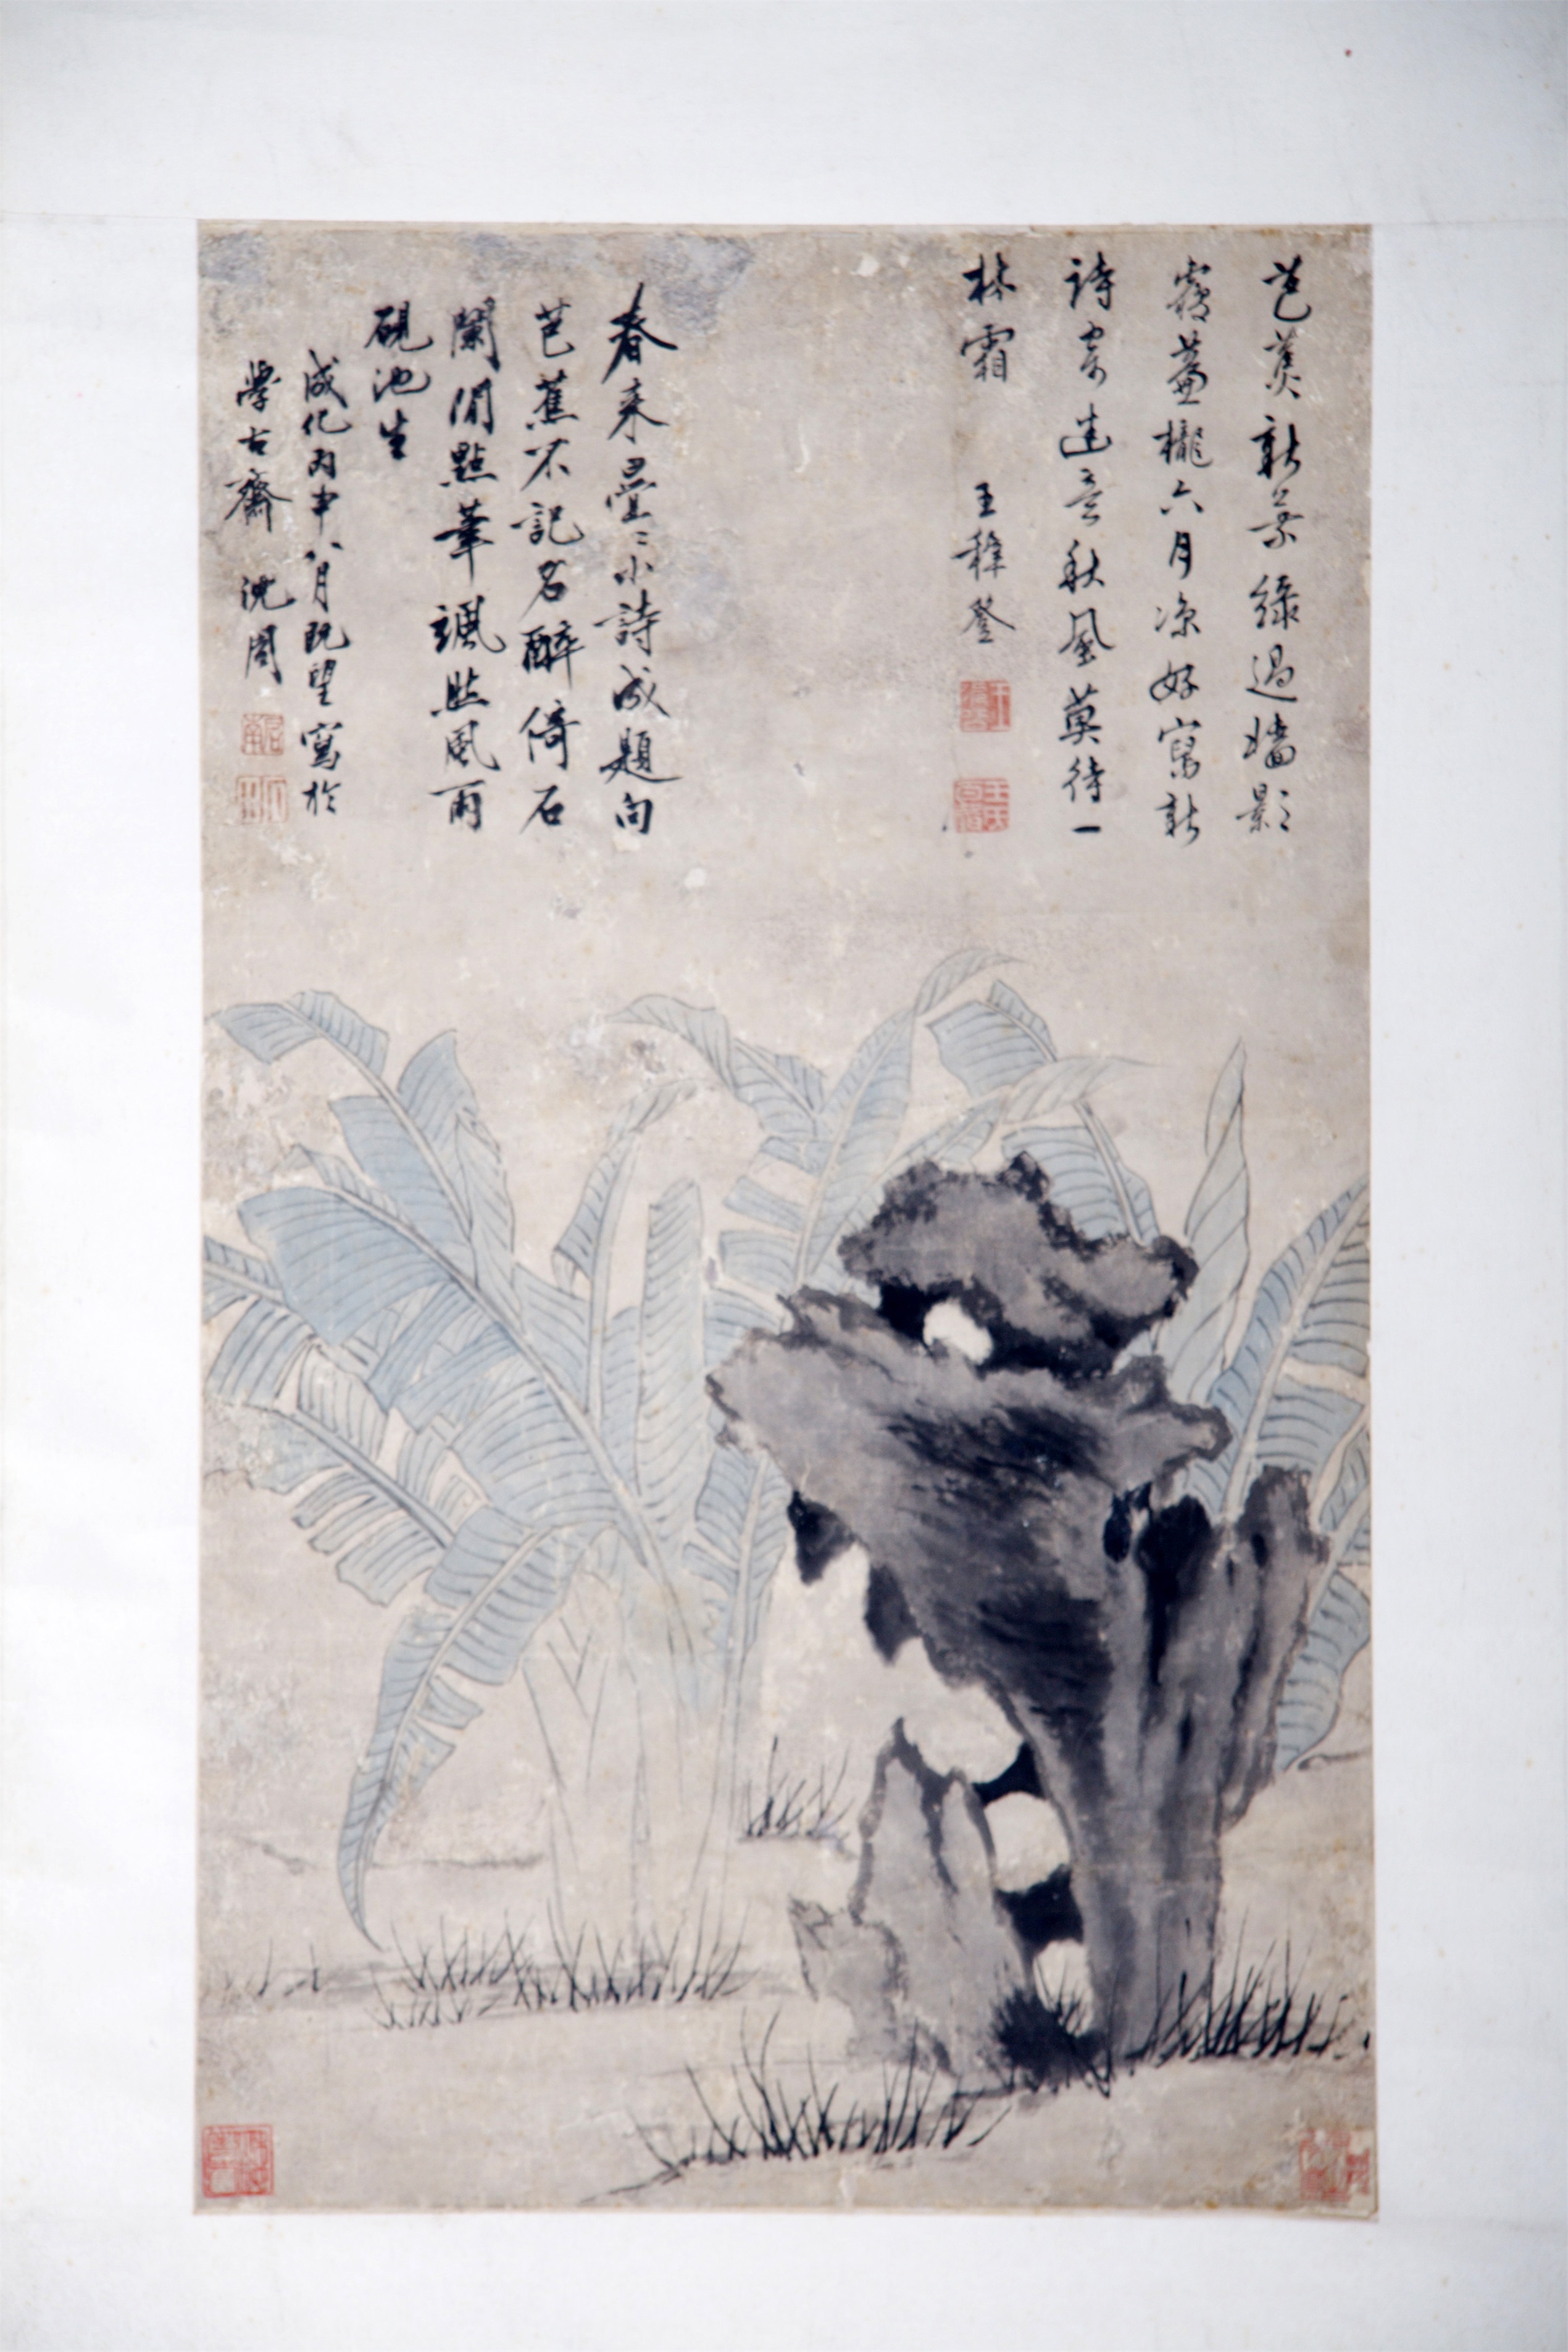 芭蕉新葉綠過墻影
簾櫳六月涼好寫新
詩寄 秋風莫待一
林霜 王穉登
春來疊〻小詩成題向
芭蕉不記名醉倚石
闌閒點筆颯然風雨
硯池生
成化丙申八月既望寫於
學古齋 沈周